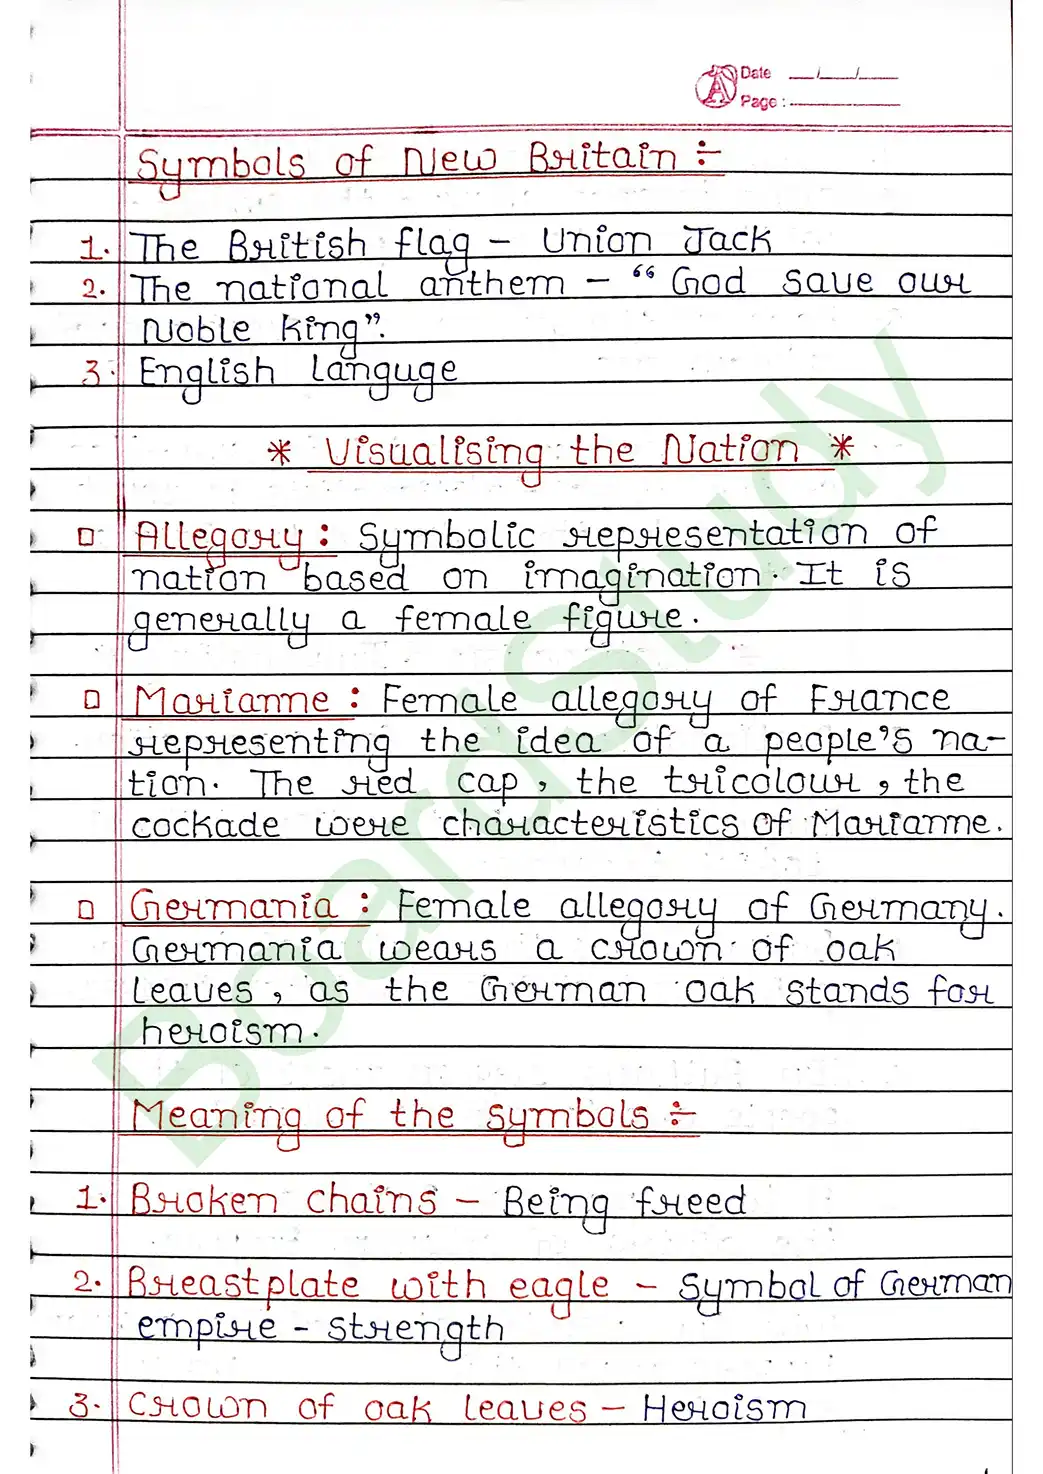 Date __/__/__
Page : ______
Symbols of New Britain :-
1. The British flag - Union Jack
2. The national anthem - “ God save our
Noble King”.
3. English Languge
* Visualising the Nation *
□ Allegory : Symbolic representation of
nation based on imagination. It is
generally a female figure.
□ Marianne : Female allegory of France
representing the idea of a people's na-
tion. The red cap, the tricolour, the
cockade were characteristics of Marianne.
□ Germania : Female allegory of Germany.
Germania wears a crown of oak
leaves, as the German oak stands for
heroism.
Meaning of the symbols :-
1. Broken chains - Being freed
2. Breastplate with eagle - Symbol of German
empire - strength
3. Crown of oak leaves - Heroism
BoardStudy